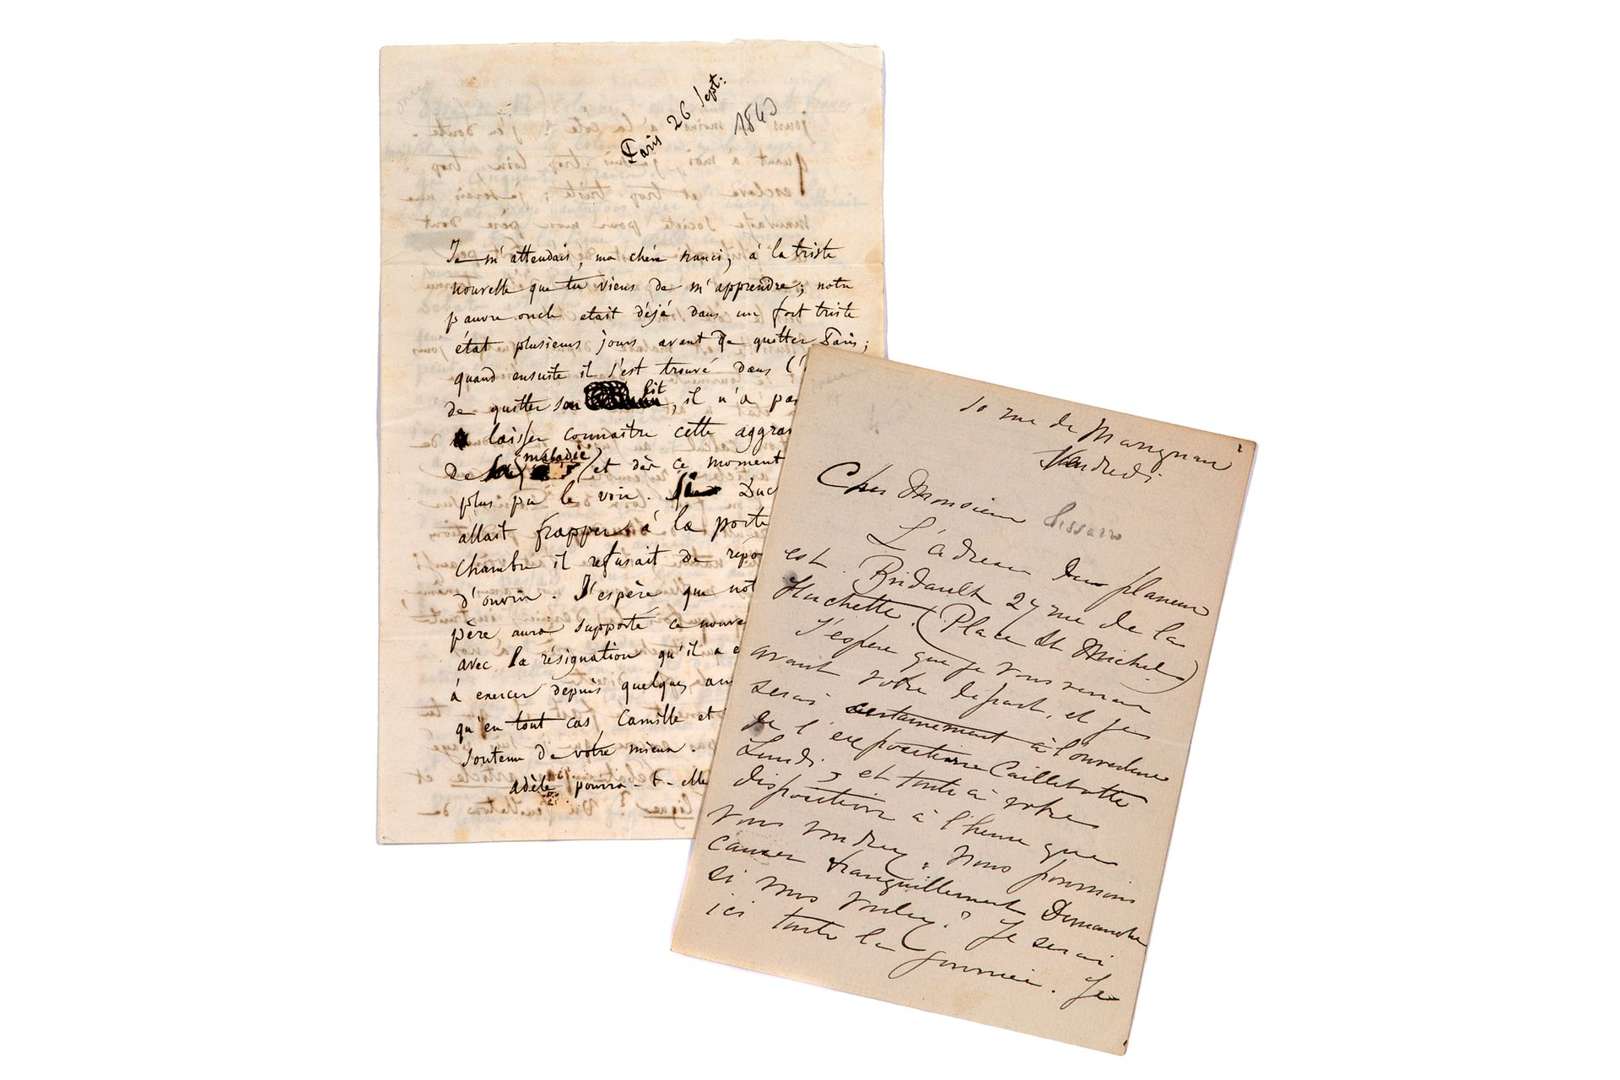 Paris 26 Sept:
1843
Je m'attendais, ma chère Nanci, à la triste
nouvelle que tu viens de m'apprendre; notre
pauvre oncle etait déjà dans un fort triste
état plusieurs jours avant de quitter Paris;
quand ensuite il s'est trouvé dans l'
de quitter son lit, il n'a pas
laisser connaître cette aggra
de sa maladie et dès ce moment
plus pu le voir. Duc
allait frapper à la porte
chambre il refusait de repo
d'ouvrir. J'espère que not
père aura supporté ce nouve
avec la résignation qu'il a e
à exercer depuis quelques an
qu'en tout cas Camille et
soutenu de votre mieux.
adèle pourra-t-elle
10 rue de Marignan
Vendredi
Cher Monsieur Pissarro
L'adresse du planeur
est. Bridault 27 rue de la
Huchette. (Place St Michel)
J'espere que je vous verrai
avant votre depart, et je
serai certainement à l'ouverture
de l'exposition Caillebotte
Lundi, et toute à votre
disposition à l'heure que
vous voudrez. Nous pourrions
causer tranquillement Dimanche
si vous voulez? Je serai
ici toute la journée. Je